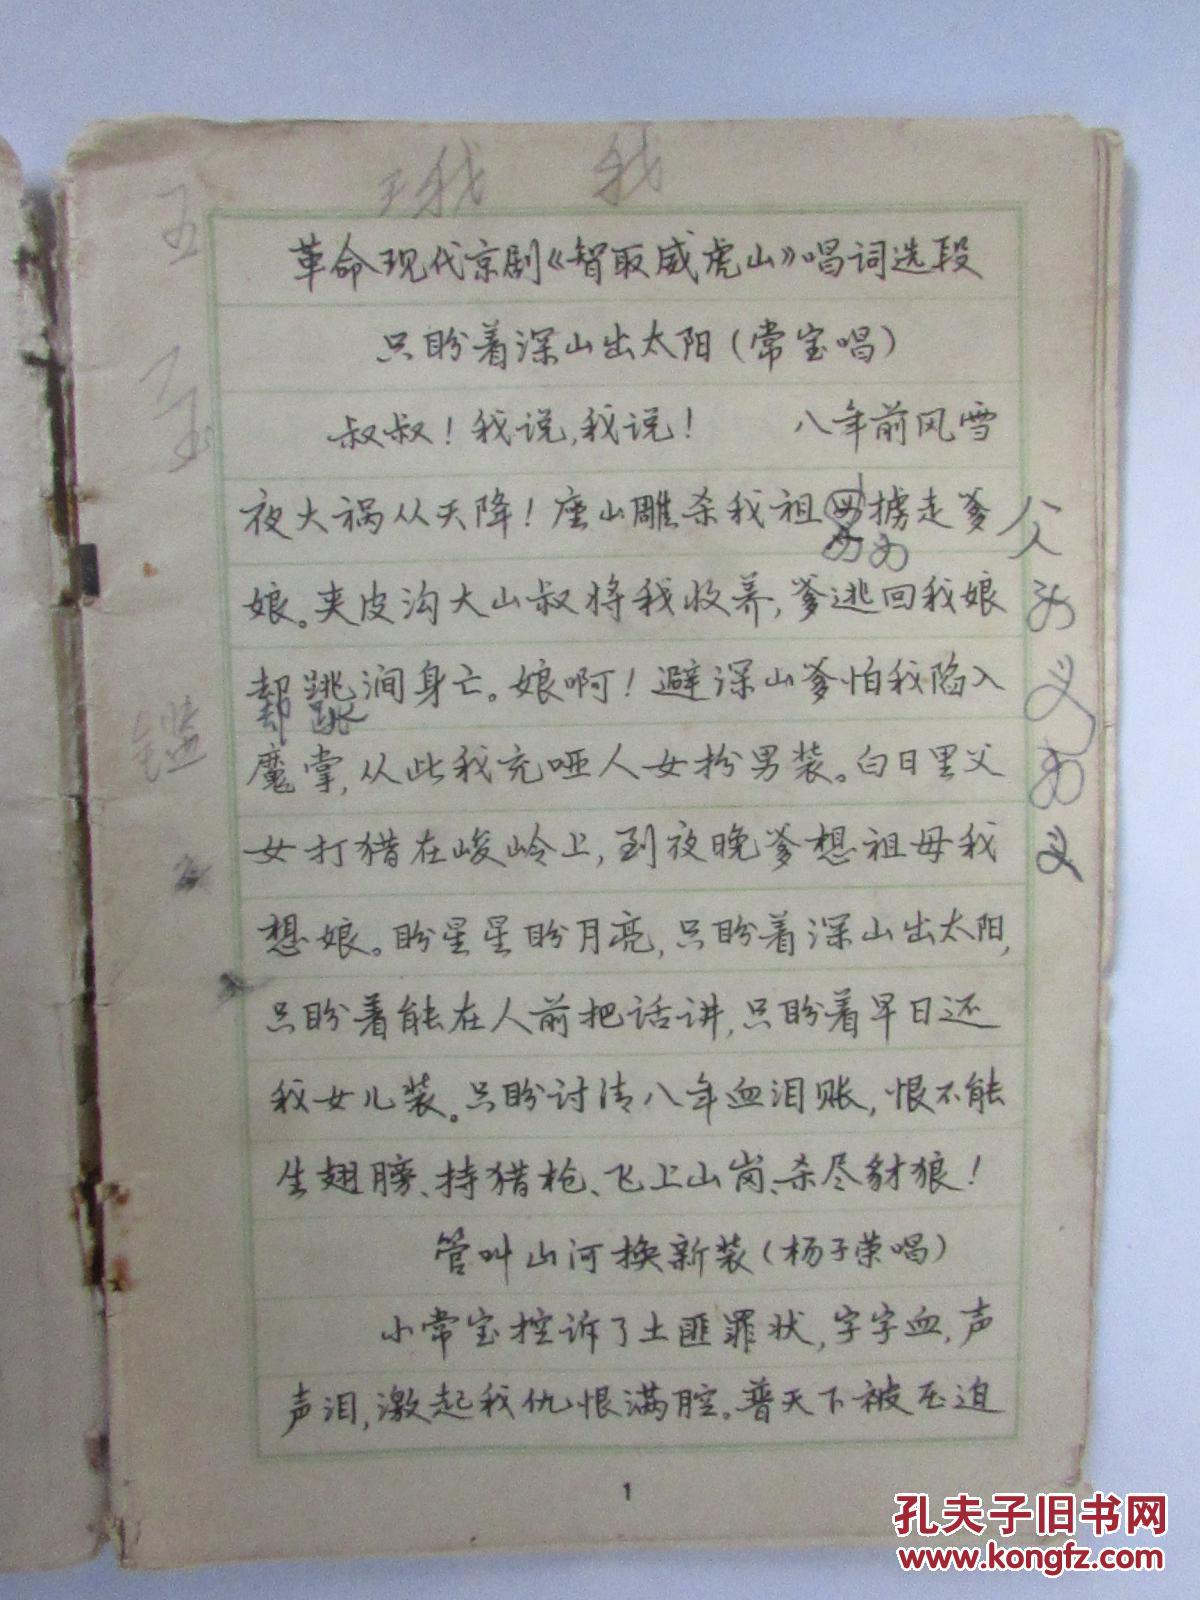 五 我 我
革命现代京剧《智取威虎山》唱词选段
只盼着深山出太阳（常宝唱）
叔叔！我说，我说！ 八年前风雪
夜大祸从天降！座山雕杀我祖母掳走爹
娘。夹皮沟大山叔将我收养，爹逃回我娘
却跳涧身亡。娘啊！避深山爹怕我陷入
却 跳
魔掌，从此我充哑人女扮男装。白日里父
女打猎在峻岭上，到夜晚爹想祖母我
想娘。盼星星盼月亮，只盼着深山出太阳，
只盼着能在人前把话讲，只盼着早日还
我女儿装。只盼讨清八年血泪账，恨不能
生翅膀、持猎枪、飞上山岗、杀尽豺狼！
管叫山河换新装（杨子荣唱）
小常宝控诉了土匪罪状，字字血，声
声泪，激起我仇恨满腔。普天下被压迫
1
孔夫子旧书网
www.kongfz.com